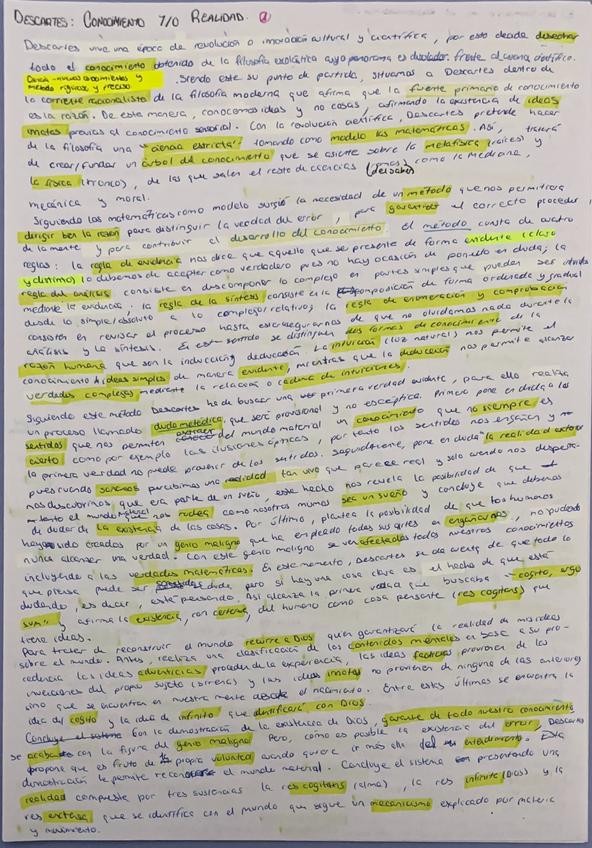 DESCARTES: CONOCIMIENTO Y/O REALIDAD.
Descartes vive una época de revolución o innovación cultural y científica, por esto decide desechar
todo el conocimiento obtenido de la filosofía escolástica cuyo panorama es desolador frente al avance científico.
método riguroso y preciso. Siendo este su punto de partida, situamos a Descartes dentro de
la corriente racionalista de la filosofía moderna que afirma que la fuente primaria de conocimiento
es la razón. De esta manera, conocemos ideas y no cosas, afirmando la existencia de ideas
innatas previas al conocimiento sensorial. Con la revolución científica, Descartes pretende hacer
de la filosofía una "ciencia estricta" tomando como modelo las matemáticas. Así, tratará
de crear/fundar un árbol del conocimiento que se asiente sobre la metafísica (raíces) y
la física (tronco), de las que salen el resto de ciencias como la Medicina,
mecánica y moral.
Siguiendo las matemáticas como modelo surgió la necesidad de un método que nos permitiera
dirigir bien la razón para distinguir la verdad del error, para garantizar el correcto proceder
de la mente y para contribuir al desarrollo del conocimiento. El método consta de cuatro
reglas: la regla de evidencia nos dice que aquello que se presente de forma evidente (claro
y distinto) lo debemos de aceptar como verdadero pues no hay ocasión de ponerlo en duda; la
regla del análisis consiste en descomponer lo complejo en partes simples que puedan ser
mediante la evidencia; la regla de la síntesis consiste en la composición de forma ordenada y gradual
desde lo simple/absoluto a lo complejo/relativo; la regla de enumeración y comprobación
consiste en revisar el proceso hasta asegurarnos de que no olvidamos nada durante la
análisis y la síntesis. En este sentido se distinguen dos formas de conocimiento de la
razón humana que son la inducción y deducción. La intuición (luz natural) nos permite el
conocimiento de ideas simples de manera evidente, mientras que la deducción nos permite alcanzar
verdades complejas mediante la relación o cadena de intuiciones.
Siguiendo este método Descartes ha de buscar una primera verdad evidente, para ello realiza
un proceso llamado duda metódica, que será provisional y no escéptica. Primero pone en duda los
sentidos que nos permiten conocer del mundo material un conocimiento que no siempre es
cierto como por ejemplo las ilusiones ópticas, por tanto los sentidos nos engañan y
la primera verdad no puede provenir de los sentidos. Seguidamente, pone en duda la realidad exterior
pues cuando soñamos percibimos una realidad tan viva que parece real y solo cuando nos desperta-
mos descubrimos que era parte de un sueño, este hecho nos revela la posibilidad de que
tanto el mundo que nos rodea como nosotros mismos sea un sueño y concluye que debemos
de dudar de la existencia de las cosas. Por último, plantea la posibilidad de que los humanos
hayan sido creados por un genio maligno que ha empleado todas sus artes en engañarnos, no pudiendo
nunca alcanzar una verdad. Con este genio maligno se ven afectados todos nuestros conocimientos
incluyendo a las verdades matemáticas. En este momento, Descartes se da cuenta de que todo lo
que piensa puede ser duda, pero si hay una cosa clave es el hecho de que está
dudando, es decir, está pensando. Así alcanza la primera verdad que buscaba "cogito, ergo
sum" y afirma la existencia, con certeza, del humano como cosa pensante (res cogitans) que
tiene ideas.
Para tratar de reconstruir el mundo recurre a Dios quien garantizará la realidad de mis ideas
sobre el mundo. Antes, realiza una clasificación de los contenidos mentales en base a su pro-
cedencia: las ideas adventicias proceden de la experiencia, las ideas facticias provienen de las
invenciones del propio sujeto (sirenas) y las ideas innatas no provienen de ninguna de las anteriores
sino que se encuentran en nuestra mente desde el nacimiento. Entre estas últimas se encuentra la
idea del cogito y la idea de infinito que identificará con Dios.
Con la demostración de la existencia de Dios, garante de todo nuestro conocimiento
se acaba con la figura del genio maligno. Pero, ¿cómo es posible la existencia del error? Descartes
propone que es fruto de la propia voluntad cuando quiere ir más allá del entendimiento. Esta
demostración le permite reconstruir el mundo material. Concluye el sistema presentando una
realidad compuesta por tres sustancias: la res cogitans (alma), la res infinita (Dios) y la
res extensa que se identifica con el mundo que sigue un mecanicismo explicado por materia
y movimiento.